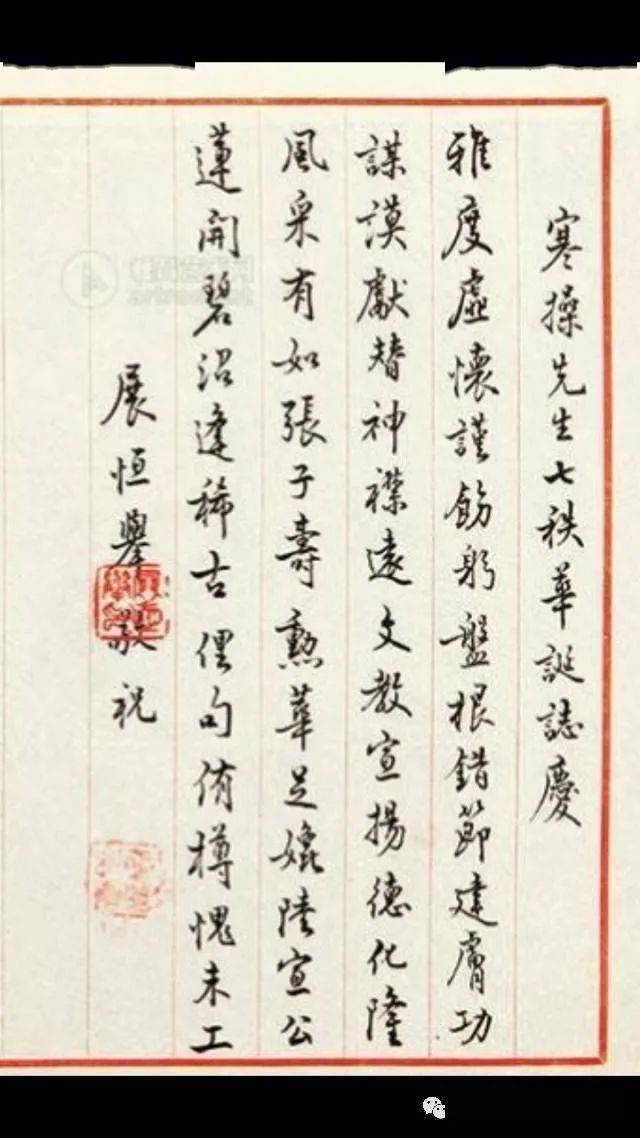 寒操先生七秩華誕誌慶
雅度虛懷謹飭躬盤根錯節建膚功
謀謨獻替神襟遠文教宣揚德化隆
風采有如張子壽勲華足媲陸宣公
蓮開碧沼逢稀古俚句侑樽愧未工
展恒舉敬祝